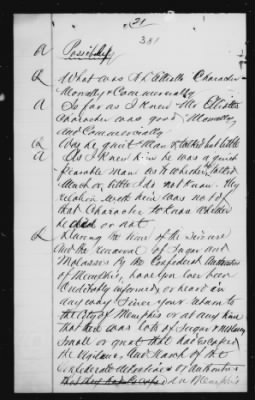 21
351
A Possibly
Q What was Mr Elliotts Character
Morally & Commercially
A So far as I knew Mr Elliotts
Character was good Morally
and Commercially
Q Was he quiet Man or talked but little
A As I knew him he was a quiet
peacable man as to whether he talked
Much or little I do not know. My
relation with him was not of
that Character to know whether
he did or not
Q During the time of the seizure
and the removal of Sugar and
Molasses by the Confederate Authorities
of Memphis, have you ever been
Creditably informed or heard in
any way since your return to
the City of Memphis or at any time
that there was lots of Sugar & Molasses
Small or great that had escaped
the Vigilance and March of the
Confederate detectives or Authorities
in Memphis